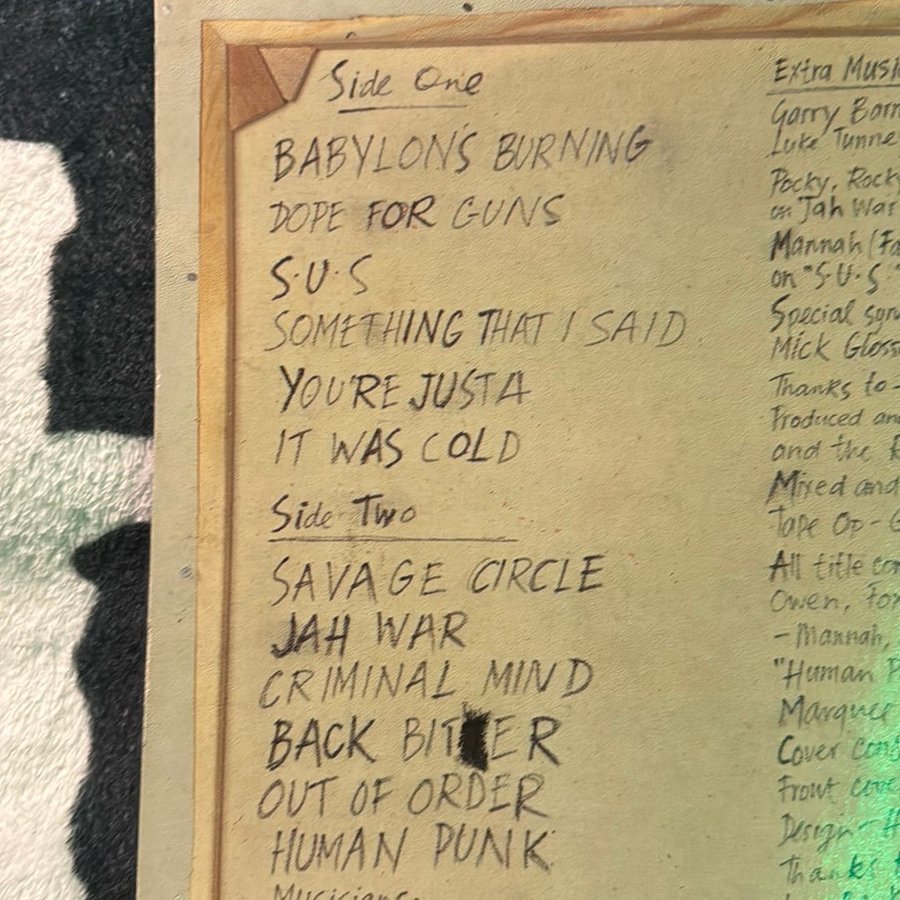 Side One
BABYLON'S BURNING
DOPE FOR GUNS
S·U·S
SOMETHING THAT I SAID
YOU'RE JUST A
IT WAS COLD
Side Two
SAVAGE CIRCLE
JAH WAR
CRIMINAL MIND
BACK BITER
OUT OF ORDER
HUMAN PUNK
Musicians:
Extra Musi
Garry Barn
Luke Tunne
Pocky, Rocky
on Jah War
Mannah (Fa
on "S·U·S."
Special syn
Mick Gloss
Thanks to-
Produced an
and the R
Mixed and
Tape Op - G
All title con
Owen, Fox
- Mannah,
"Human P
Marquee
Cover con
Front cove
Design - H
Thanks t